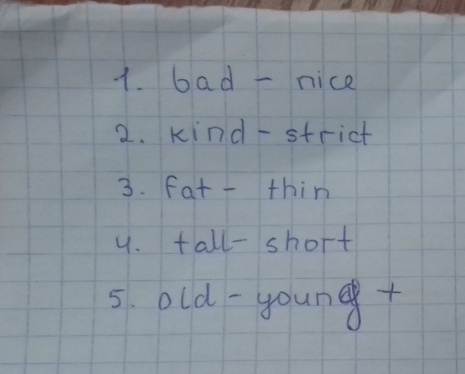 1. bad - nice
2. kind - strict
3. fat - thin
4. tall - short
5. old - young +